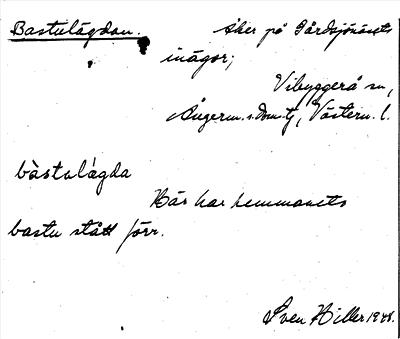 Bastulägdan. åker på Gårdsjönäsets
inägor;
Vibyggerå sn,
Ångerm. s. doms., Västern. l.
bàstulágda
Här har hemmanets
bastu stått förr.
Sven Hiller 1948.